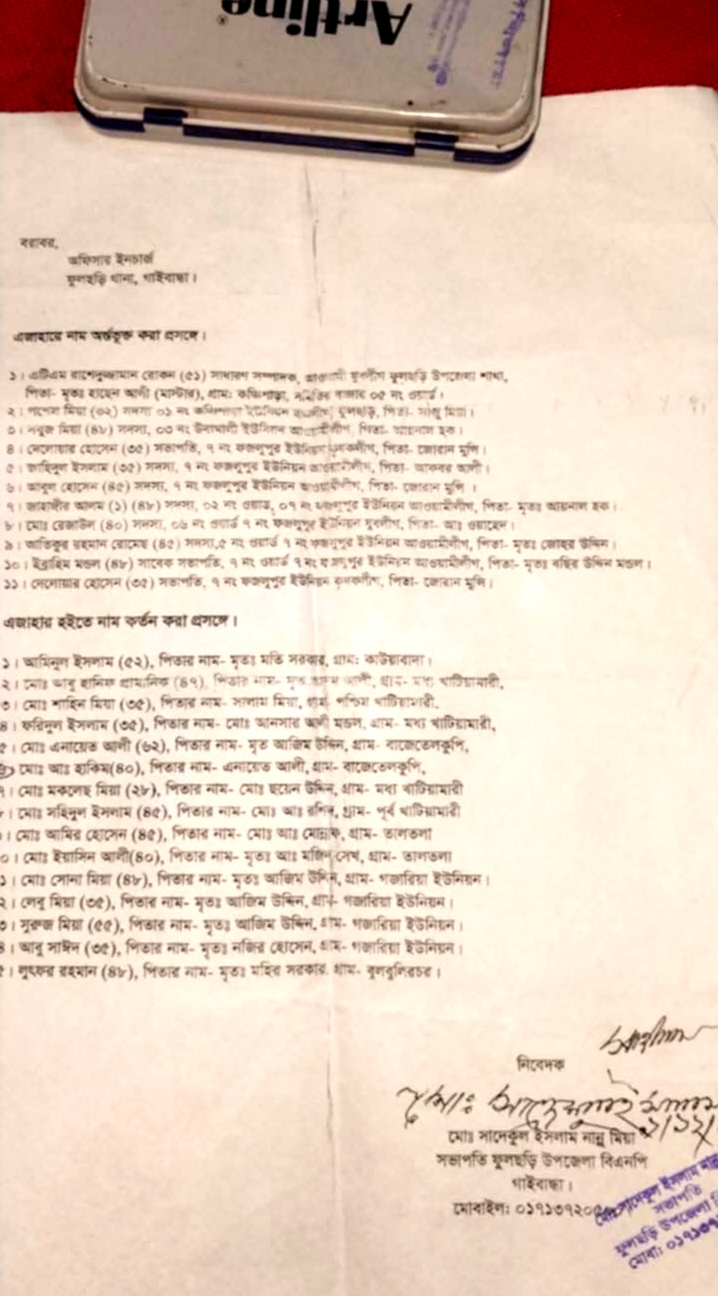 Artline
বরাবর,
অফিসার ইনচার্জ
ফুলছড়ি থানা, গাইবান্ধা।
এজাহারে নাম অর্ন্তভূক্ত করা প্রসঙ্গে।
১। এটিএম রাশেদুজ্জামান রোকন (৫১) সাধারণ সম্পাদক, আওয়ামী যুবলীগ ফুলছড়ি উপজেলা শাখা,
পিতা- মৃতঃ হাছেন আলী (মাস্টার), গ্রাম: কঞ্চিপাড়া, সমিতির বাজার ০৫ নং ওয়ার্ড।
২। মিয়া (৩২) সদস্য ০১ নং ইউনিয়ন ফুলছড়ি, পিতা- মিয়া।
৩। সবুজ মিয়া (৪৮) সদস্য, ০৩ নং উদাখালী ইউনিয়ন পিতা- আয়নাল হক।
৪। দেলোয়ার হোসেন (৩৫) সভাপতি, ৭ নং ফজলুপুর ইউনিয়ন কৃষকলীগ, পিতা- জোরান মুন্সি।
৫। জাহিদুল ইসলাম (৩৫) সদস্য, ৭ নং ফজলুপুর ইউনিয়ন আওয়ামীলীগ, পিতা- আকবর আলী।
৬। আবুল হোসেন (৪৫) সদস্য, ৭ নং ফজলুপুর ইউনিয়ন আওয়ামীলীগ, পিতা- জোরান মুন্সি ।
৭। জাহাঙ্গীর আলম (১) (৪৮) সদস্য, ০২ নং ওয়াড, ০৭ নং ফজলুপুর ইউনিয়ন আওয়ামীলীগ, পিতা- মৃতঃ আয়নাল হক।
৮। মোঃ রেজাউল (৪০) সদস্য, ০৬ নং ওয়ার্ড ৭ নং ফজলুপুর ইউনিয়ন যুবলীগ, পিতা- আঃ ওয়াহেদ।
৯। আতিকুর রহমান রোমেছ (৪৫) সদস্য,৫ নং ওয়ার্ড ৭ নং ফজলুপুর ইউনিয়ন আওয়ামীলীগ, পিতা- মৃতঃ জোহর উদ্দিন।
১০। ইব্রাহিম মন্ডল (৪৮) সাবেক সভাপতি, ৭ নং ওয়ার্ড ৭ নং ফজলুপুর ইউনিয়ন আওয়ামীলীগ, পিতা- মৃতঃ বছির উদ্দিন মন্ডল।
১১। দেলোয়ার হোসেন (৩৫) সভাপতি, ৭ নং ফজলুপুর ইউনিয়ন কৃষকলীগ, পিতা- জোরান মুন্সি।
এজাহার হইতে নাম কর্তন করা প্রসঙ্গে।
১। আমিনুল ইসলাম (৫২), পিতার নাম- মৃতঃ মতি সরকার, গ্রাম: কাউয়াবাদা।
২। মোঃ আবু হানিফ প্রামানিক (৪৭), পিতার নাম- মৃত আলী, গ্রাম- মধ্য খাটিয়ামারী,
৩। মোঃ শাহিন মিয়া (৩৫), পিতার নাম- সালাম মিয়া, গ্রাম পশ্চিম খাটিয়ামারী,
৪। ফরিদুল ইসলাম (৩৫), পিতার নাম- মোঃ আনসার আলী মন্ডল, গ্রাম- মধ্য খাটিয়ামারী,
৫। মোঃ এনায়েত আলী (৬২), পিতার নাম- মৃত আজিম উদ্দিন, গ্রাম- বাজেতেলকুপি,
মোঃ আঃ হাকিম(৪০), পিতার নাম- এনায়েত আলী, গ্রাম- বাজেতেলকুপি,
৭। মোঃ মকলেছ মিয়া (২৮), পিতার নাম- মোঃ ছয়েন উদ্দিন, গ্রাম- মধ্য খাটিয়ামারী
৮। মোঃ সহিদুল ইসলাম (৪৫), পিতার নাম- মোঃ আঃ রশিদ, গ্রাম- পূর্ব খাটিয়ামারী
। মোঃ আমির হোসেন (৪৫), পিতার নাম- মোঃ আঃ গ্রাম- তালতলা
০। মোঃ ইয়াসিন আলী(৪০), পিতার নাম- মৃতঃ আঃ মজিদ সেখ, গ্রাম- তালতলা
১। মোঃ সোনা মিয়া (৪৮), পিতার নাম- মৃতঃ আজিম উদ্দিন, গ্রাম- গজারিয়া ইউনিয়ন।
২। লেবু মিয়া (৩৫), পিতার নাম- মৃতঃ আজিম উদ্দিন, গ্রাম- গজারিয়া ইউনিয়ন।
৩। সুরুজ মিয়া (৫৫), পিতার নাম- মৃতঃ আজিম উদ্দিন, গ্রাম- গজারিয়া ইউনিয়ন।
৪। আবু সাঈদ (৩৫), পিতার নাম- মৃতঃ নজির হোসেন, গ্রাম- গজারিয়া ইউনিয়ন।
৫। লুৎফর রহমান (৪৮), পিতার নাম- মৃতঃ মহির সরকার, গ্রাম- বুলবুলিরচর।
নিবেদক
মোঃ সাদেকুল ইসলাম নান্নু মিয়া
সভাপতি ফুলছড়ি উপজেলা বিএনপি
গাইবান্ধা।
মোবাইল: ০১৭১৩৭২০
মোঃ সাদেকুল ইসলাম
সভাপতি
ফুলছড়ি উপজেলা
মোবা: ০১৭১৩৭